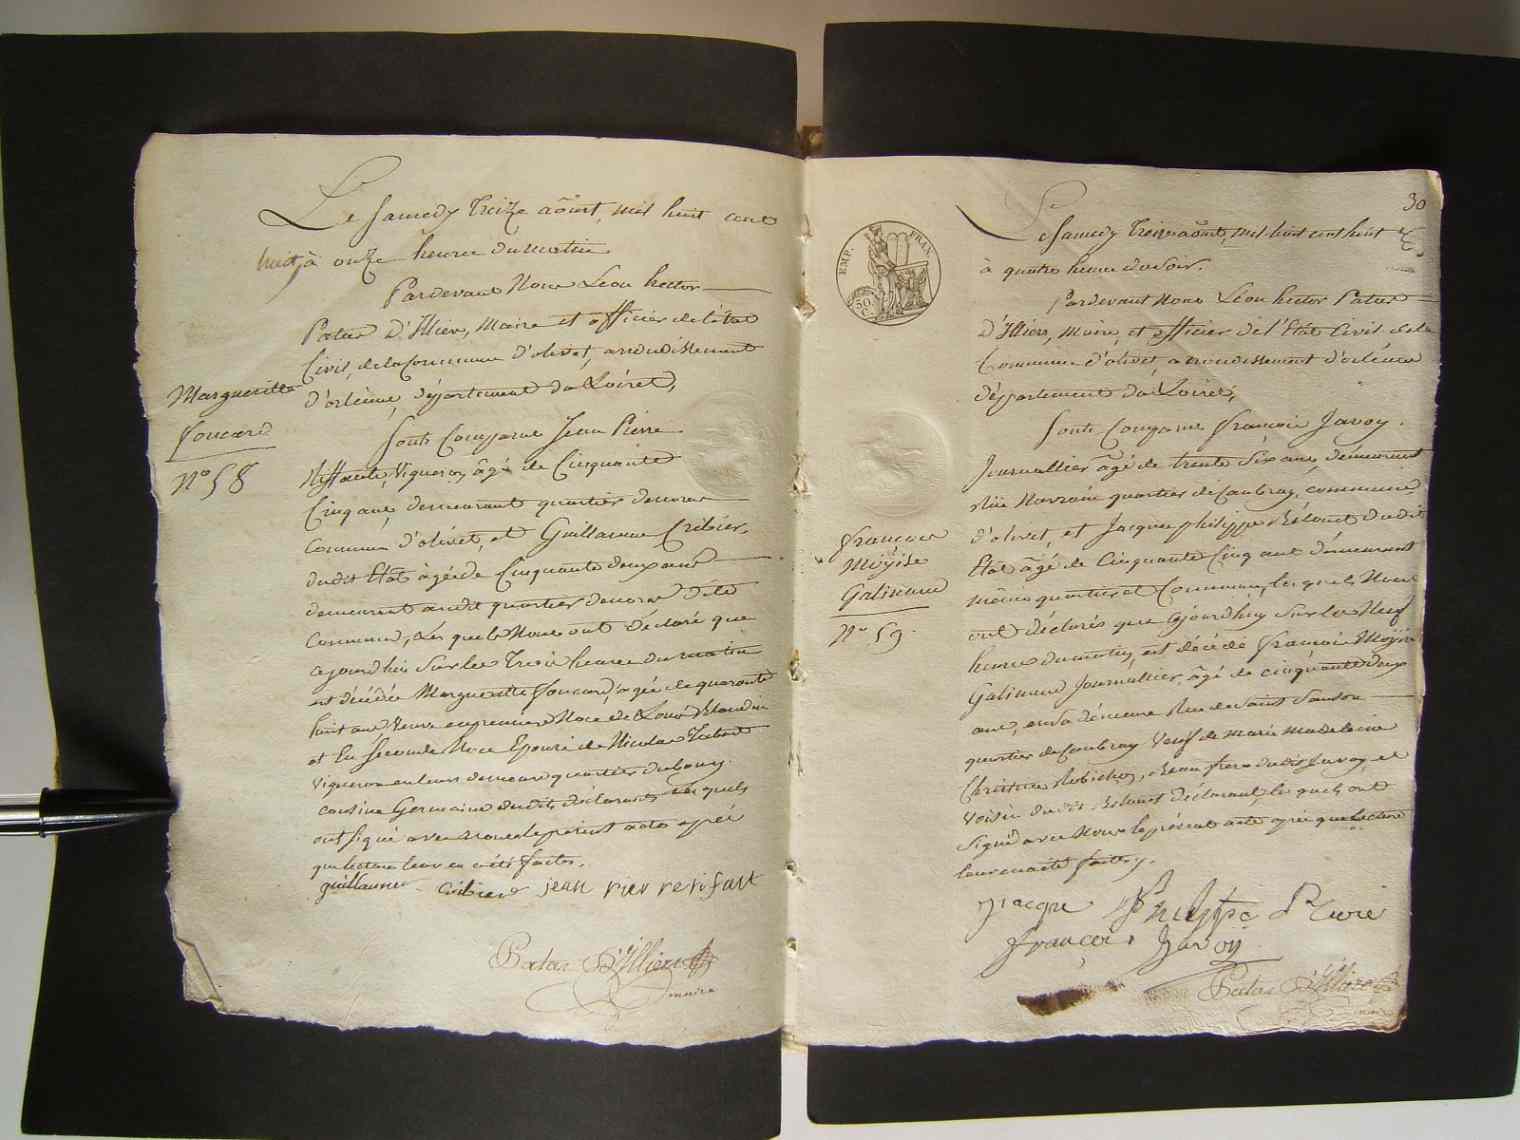 Le samedy treize août, mil huit cent
huit, à onze heures du matin
Pardevant Nous Léon hector
Patas D'Illiers, Maire et officier de l'état
Civil, de la Commune d'olivet, arondissement
d'orléans, département du Loiret,
Margueritte
foucard
N° 58
Sont Comparus Jean Pierre
Vigneron, âgé de Cinquante
Cinq ans, demeurant quartier
Commune d'olivet, et Guillaume Cribier,
dudit Etat âgé de Cinquante deux ans
demeurant audit quartier dite
Commune, Les quels Nous ont déclaré que
cejourdhui sur les Trois heures du matin
est décédée Marguerite foucard, agée de quarante
huit ans, veuve en premiere Noce de Louis
et En seconde Noce Epouse de Nicolas
vigneron en leur demeure quartier du bourg.
cousine Germaine dudit déclarants Les quels
ont signé avec Nous le présent acte après
que lecture leur en a été faite.
guillaume cribier jean
Patas D'Illiers
maire
30
Le samedy treize août, mil huit cent huit
à quatre heures du soir.
EMP. FRAN.
50 C.
pardevant Nous Léon hector Patas
D'Illiers, Maire, et officier de l'Etat Civil de la
Commune d'olivet, arondissement d'orléans
département du Loiret,
Sont Comparus françois Javoy
Journallier âgé de trente Six ans, demeurant
quartier de Caubray, commune
d'olivet, et Jacque philippe dudit
Etat âgé de Cinquante Cinq ans demeurant
même quartier et Commune, les quels Nous
ont déclarés que cejourdhuy sur les Neuf
heures du matin, est décédé françois Moÿse
françois
Moÿse
Galineau
N° 59.
Galineau Journallier, âgé de cinquante deux
ans, en sa demeure Rue de Saint Sanson
quartier de Caubray veuf de marie madeleine
Christine Robichon, Beau frere dudit Javoy, et
voisin dudit déclarant, les quels ont
signé avec Nous le présent acte après que lecture
leur en a été faitte.
Jiacque Philippe
françois Javoy
Patas D'Illiers
maire